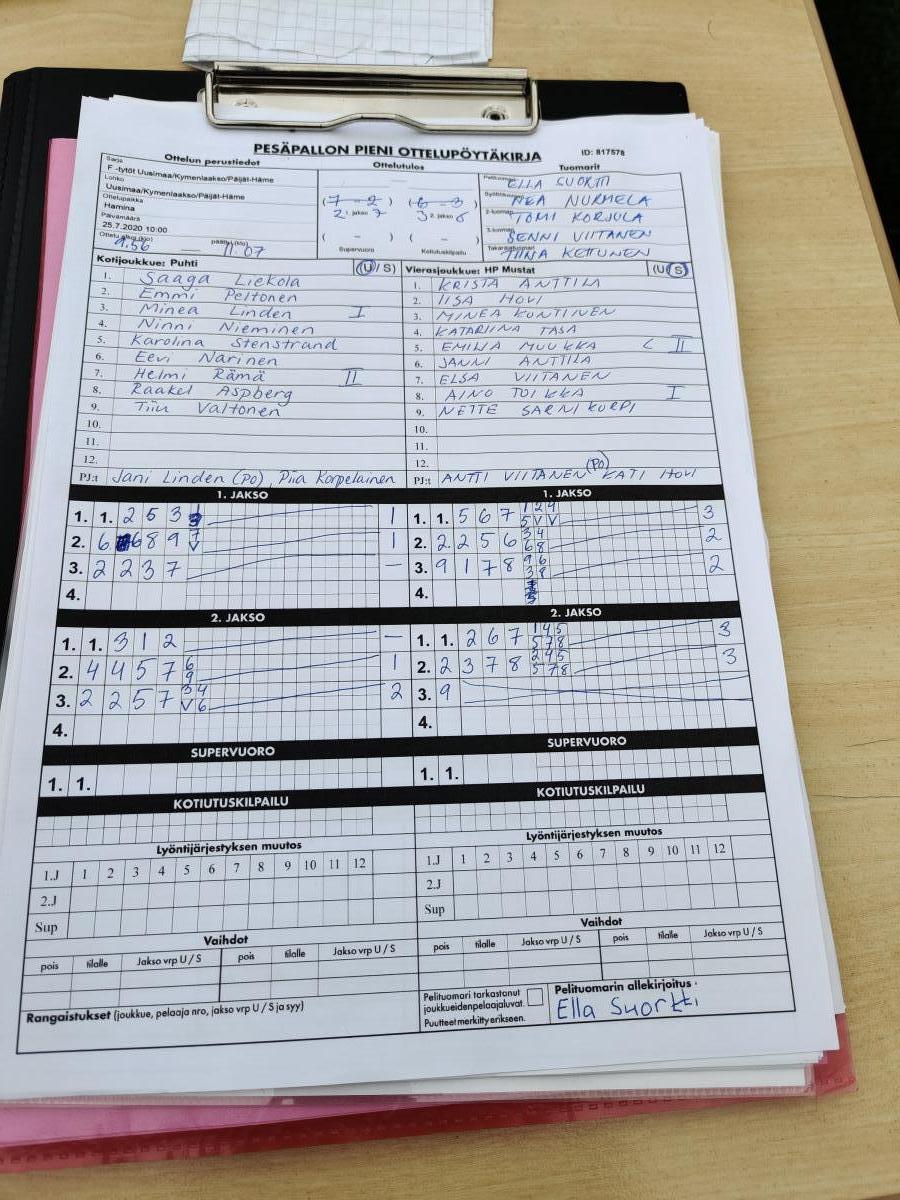 PESÄPALLON PIENI OTTELUPÖYTÄKIRJA
ID: 817578
Ottelun perustiedot
Sarja
F -tytöt Uusimaa/Kymenlaakso/Päijät-Häme
Lohko
Uusimaa/Kymenlaakso/Päijät-Häme
Ottelupaikka
Hamina
Päivämäärä
25.7.2020 10:00
Ottelu alkoi (klo)
9.56
päättyi (klo)
11.07
Ottelutulos
2. jakso
2. jakso
( - ) ( - )
Supervuoro Kotiutuskilpailu
Tuomarit
ELLA SUORTTI
NEA NURMELA
TOMI KORJULA
SENNI VIITANEN
TIINA KETTUNEN
Kotijoukkue: Puhti (U / S)
1. Saaga Liekola
2. Emmi Peltonen
3. Minea Linden I
4. Ninni Nieminen
5. Karolina Stenstrand
6. Eevi Närinen
7. Helmi Rämä II
8. Raakel Aspberg
9. Tiiu Valtonen
10.
11.
12.
PJ:t Jani Linden (PO), Piia Korpelainen
Vierasjoukkue: HP Mustat (U / S)
1. KRISTA ANTTILA
2. IISA HOVI
3. MINEA KONTINEN
4. KATARIINA TASA
5. EMILIA MUUKKA C II
6. JANNI ANTTILA
7. ELSA VIITANEN
8. AINO TOIKKA I
9. NETTE SARNIKORPI
10.
11.
12.
PJ:t ANTTI VIITANEN (PO) KATI HOVI
1. JAKSO
1. 1. 2 5 3 1
2. 6 6 8 9 7 V 1
3. 2 2 3 7 —
4.
1. JAKSO
1. 1. 5 6 7 1 2 4 5 V V 3
2. 2 2 5 6 3 4 6 8 2
3. 9 1 7 8 9 6 3 8 2
4.
2. JAKSO
1. 1. 3 1 2 —
2. 4 4 5 7 6 9 1
3. 2 2 5 7 3 4 V 6 2
4.
2. JAKSO
1. 1. 2 6 7 1 4 5 5 7 8 3
2. 2 3 7 8 2 4 5 5 7 8 3
3. 9
4.
SUPERVUORO
1. 1.
SUPERVUORO
1. 1.
KOTIUTUSKILPAILU
Lyöntijärjestyksen muutos
1.J 1 2 3 4 5 6 7 8 9 10 11 12
2.J
Sup
Vaihdot
pois tilalle Jakso vrp U / S pois tilalle Jakso vrp U / S
KOTIUTUSKILPAILU
Lyöntijärjestyksen muutos
1.J 1 2 3 4 5 6 7 8 9 10 11 12
2.J
Sup
Vaihdot
pois tilalle Jakso vrp U / S pois tilalle Jakso vrp U / S
Rangaistukset (joukkue, pelaaja nro, jakso vrp U / S ja syy)
Pelituomari tarkastanut
joukkueidenpelaajaluvat.
Puutteet merkitty erikseen.
Pelituomarin allekirjoitus :
Ella Suortti